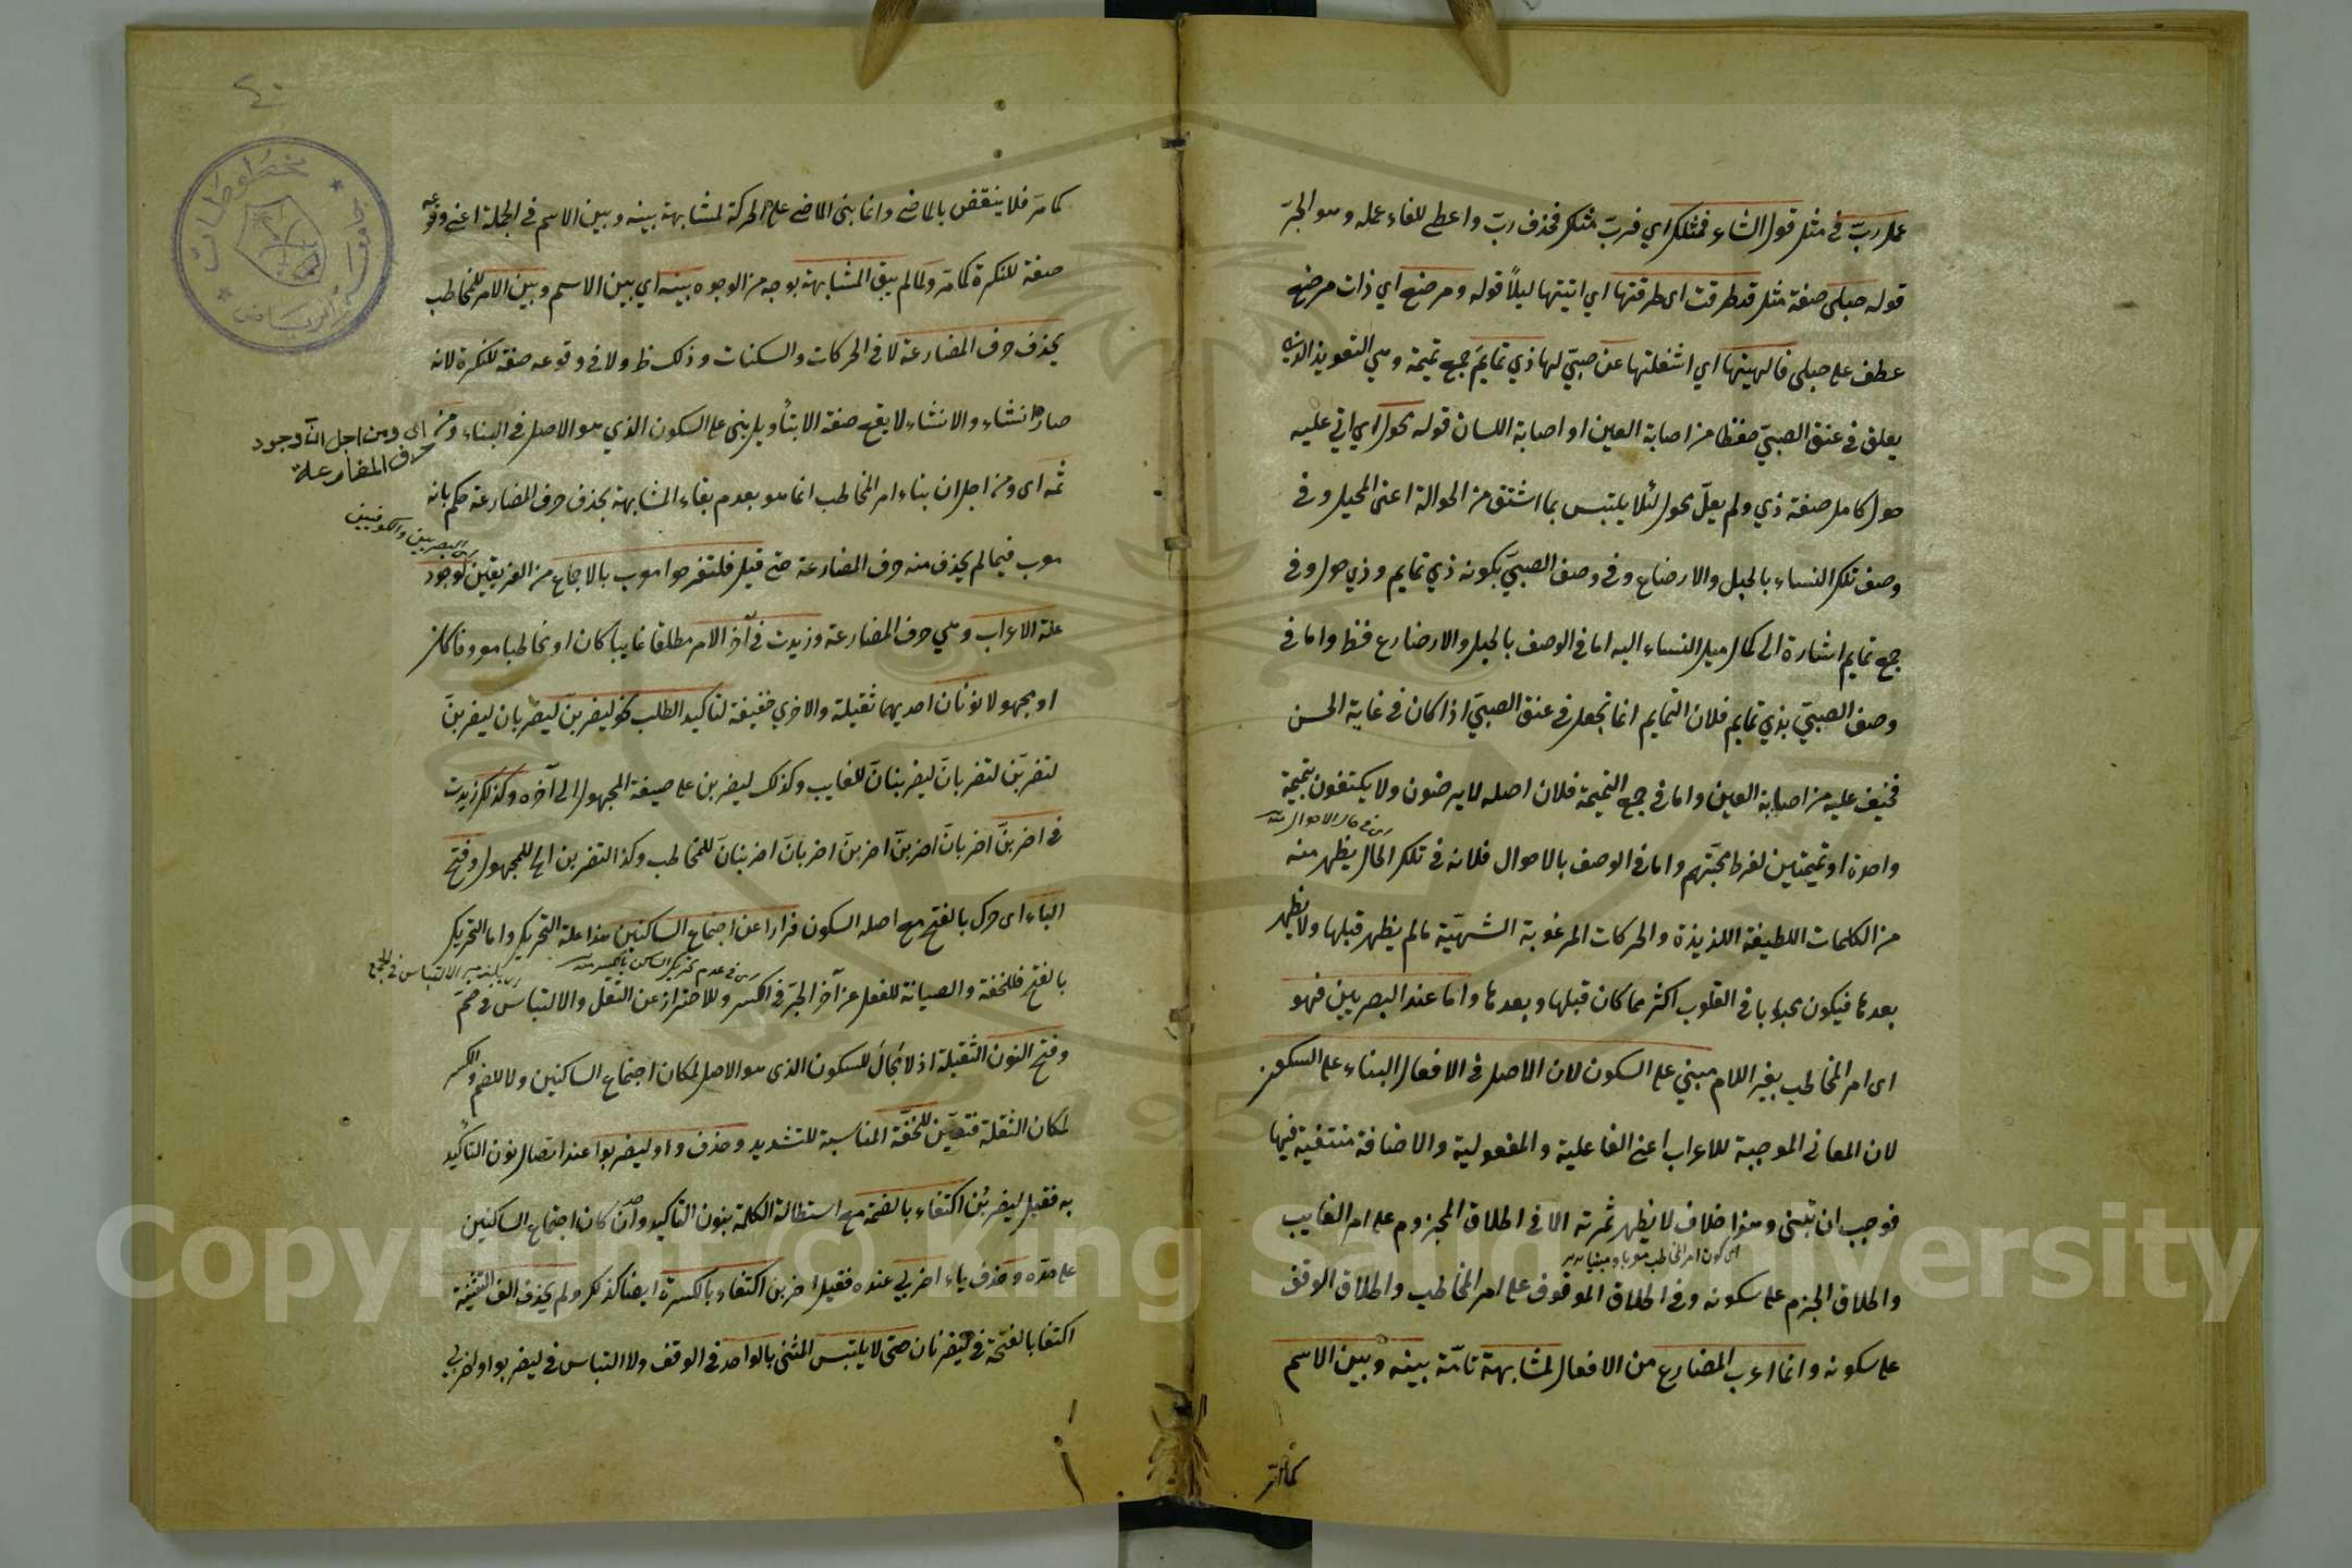 عمل ربّ في مثل قول الشاعر فمثلك اي فربّ مثلك فحذف ربّ واعطى للفاء عمله وهو الجرّ
قوله حبلى صفة مثل قد طرقت اى طرقتها اي اتيتها ليلاً قوله ومرضع اي ذات مرضع
عطف على حبلى فالهيتها اي اشغلتها عن صبيّ لها ذي تمايمَ جمع تميمة وهي التعويذ الذي
يعلق في عنق الصبيّ حفظا من اصابة العين او اصابة اللسان قوله محول اي اتي عليه
حول كامل صفة ذي ولم يعلّ محول لئلا يلتبس بما اشتق من الحوالة اعنى المحيل وفي
وصف تلك النساء بالحبل والارضاع وفي وصف الصبيّ بكونه ذي تمايم وذي حول وفي
جمع تمايم اشارة الى كمال ميل النساء اليه اما في الوصف بالحبل والارضاع فظ واما في
وصف الصبيّ بذي تمايم فلان التمايم انما تجعل في عنق الصبيّ اذا كان في غاية الحسن
فخيف عليه من اصابة العين واما في جمع التميمة فلان اصله لا يرضون ولا يكتفون بتميمة
واحدة او تميمتين لفرط محبّتهم واما في الوصف بالاحوال فلانه في تلك الحال يظهر منه
من الكلمات اللطيفة اللذيذة والحركات المرغوبة الشهيّة ما لم يظهر قبلها ولا يظهر
بعدها فيكون محبوبا في القلوب اكثر مما كان قبلها وبعدها واما عند البصريين فهو
اى امر المخاطب بغير اللام مبني على السكون لان الاصل في الافعال البناء على السكون
لان المعانى الموجبة للاعراب اعنى الفاعلية والمفعولية والاضافة منتفية فيها
فوجب ان تبنى وهذا خلاف لا يظهر ثمرته الا في اطلاق المجزوم على امر الغايب
اى كون امر المخاطب معربا ومبنيا
واطلاق الجزم على سكونه وفي اطلاق الموقوف على امر المخاطب واطلاق الوقف
على سكونه وانما اعرب المضارع من الافعال لمشابهة تامّة بينه وبين الاسم
كما مر
٤٠
جامعة الرياض
مخطوطات
كما مرّ فلا ينتقض بالماضى وانما بنى الماضى على الحركة لمشابهة بينه وبين الاسم في الجملة اعنى وقوعه
صفة للنكرة كما مرّ ولما لم يبق المشابهة بوجه من الوجوه بينه اي بين الاسم وبين الامر للمخاطب
بحذف حرف المضارعة لا في الحركات والسكنات وذلك ظ ولا في وقوعه صفة للنكرة لانه
صار انشاء والانشاء لا يقع صفة الا بتأويل بنى على السكون الذي هو الاصل في البناء ومن
اى ومن اجل انّ وجود
حرف المضارعة
ثمه اى ومن اجل ان بناء امر المخاطب انما هو بعدم بقاء المشابهة بحذف حرف المضارعة حكم بانه
البصريين والكوفيين
معرب فيما لم يحذف منه حرف المضارعة حتى قيل فلتفرحوا معرب بالاجماع من الفريقين لوجود
علة الاعراب وهي حرف المضارعة وزيدت في آخر الامر مطلقا غايبا كان او مخاطبا معروفا كان
او مجهولا نونان احديهما ثقيلة والاخرى خفيفة لتأكيد الطلب نحو ليضربنّ ليضربانّ ليضربنّ
لتضربنّ لتضربانّ ليضربنانّ للغايب وكذلك ليضربن على صيغة المجهول الى آخره وكذلك زيدت
في اضربنّ اضربانّ اضربنّ اضربنّ اضربانّ اضربنانّ للمخاطب وكذا لتضربن الخ للمجهول وفتح
الباء اى حرك بالفتح مع اصله السكون فرارا عن اجتماع الساكنين هذا علة التحريك واما التحريك
بالفتح فللخفة والصيانة للفعل عن آخر الجرّ في الكسر وللاحتراز عن الثقل والالتباس في ضمّ
وفتح النون الثقيلة اذ لا مجال للسكون الذى هو الاصل لمكان اجتماع الساكنين ولا للضم والكسر
لمكان الثقلة فتعيّن للخفّة المناسبة للتشديد وحذف واو ليضربوا عند اتصال نون التأكيد
به فقيل ليضربُن اكتفاء بالضمة مع استطالة الكلمة بنون التأكيد وان كان اجتماع الساكنين
على حدّه وحذف ياء اضربي عنده فقيل اضربن اكتفاء بالكسرة ايضا كذلك ولم يحذف الف التثنية
اكتفا بالفتحة في ليضربان حتى لا يلتبس المثنى بالواحد في الوقف ولا التباس في ليضربوا واضربي